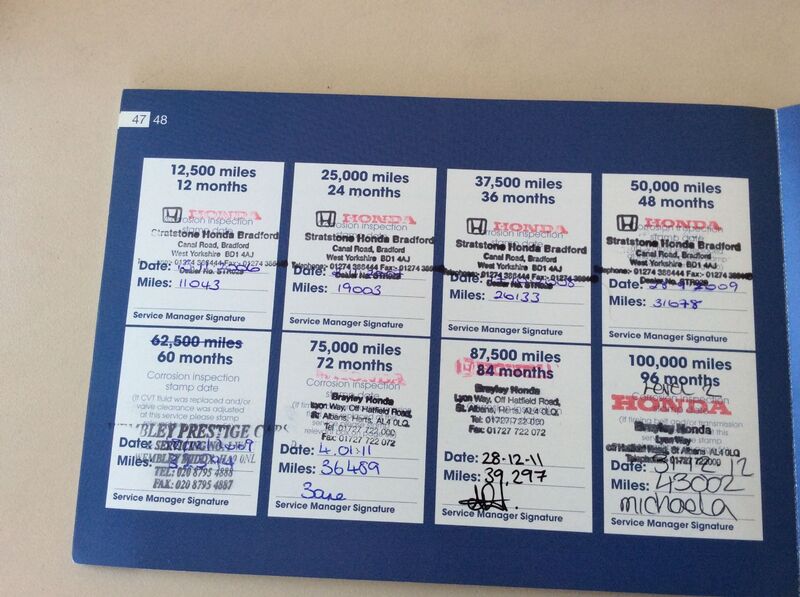 47 48
12,500 miles
12 months
HONDA
Corrosion inspection
stamp date
Stratstone Honda Bradford
Canal Road, Bradford
West Yorkshire BD1 4AJ
Telephone:- 01274 388444 Fax:- 01274
Dealer No. STR029
Date:
Miles: 11043
Service Manager Signature
25,000 miles
24 months
HONDA
Corrosion inspection
stamp date
Stratstone Honda Bradford
Canal Road, Bradford
West Yorkshire BD1 4AJ
Telephone:- 01274 388444 Fax:- 01274
Dealer No. STR029
Date:
Miles: 19003
Service Manager Signature
37,500 miles
36 months
HONDA
Corrosion inspection
stamp date
Stratstone Honda Bradford
Canal Road, Bradford
West Yorkshire BD1 4AJ
Telephone:- 01274 388444 Fax:- 01274
Dealer No. STR029
Date:
Miles: 26133
Service Manager Signature
50,000 miles
48 months
HONDA
Corrosion inspection
stamp date
Stratstone Honda Bradford
Canal Road, Bradford
West Yorkshire BD1 4AJ
Telephone:- 01274 388444 Fax:- 01274
Dealer No. STR029
Date: 2009
Miles: 31678
Service Manager Signature
62,500 miles
60 months
Corrosion inspection
stamp date
(If CVT fluid was replaced and/or
valve clearance was adjusted
at this service please stamp
WEMBLEY PRESTIGE CARS
SERVICING
Date:
WEMBLEY
Miles:
TEL: 020 8795 4888
FAX: 020 8795 4887
Service Manager Signature
75,000 miles
72 months
Corrosion inspection
Brayley Honda
Lyon Way, Off Hatfield Road,
St. Albans, Herts, AL4 0LQ.
Tel 01727
Fax: 01727 722 072
Date: 4.01.11
Miles: 36489
Jane
Service Manager Signature
87,500 miles
84 months
Brayley Honda
Lyon Way, Off Hatfield Road,
St. Albans, Herts, AL4 0LQ.
Tel: 01727 722 000
Fax: 01727 722 072
Date: 28-12-11
Miles: 39,297
Service Manager Signature
100,000 miles
96 months
Level 2
HONDA
Brayley Honda
Lyon Way
off Hatfield Road, St Albans AL4 0LQ
01727 722000
Date: 12
Miles: 43002
michaela
Service Manager Signature